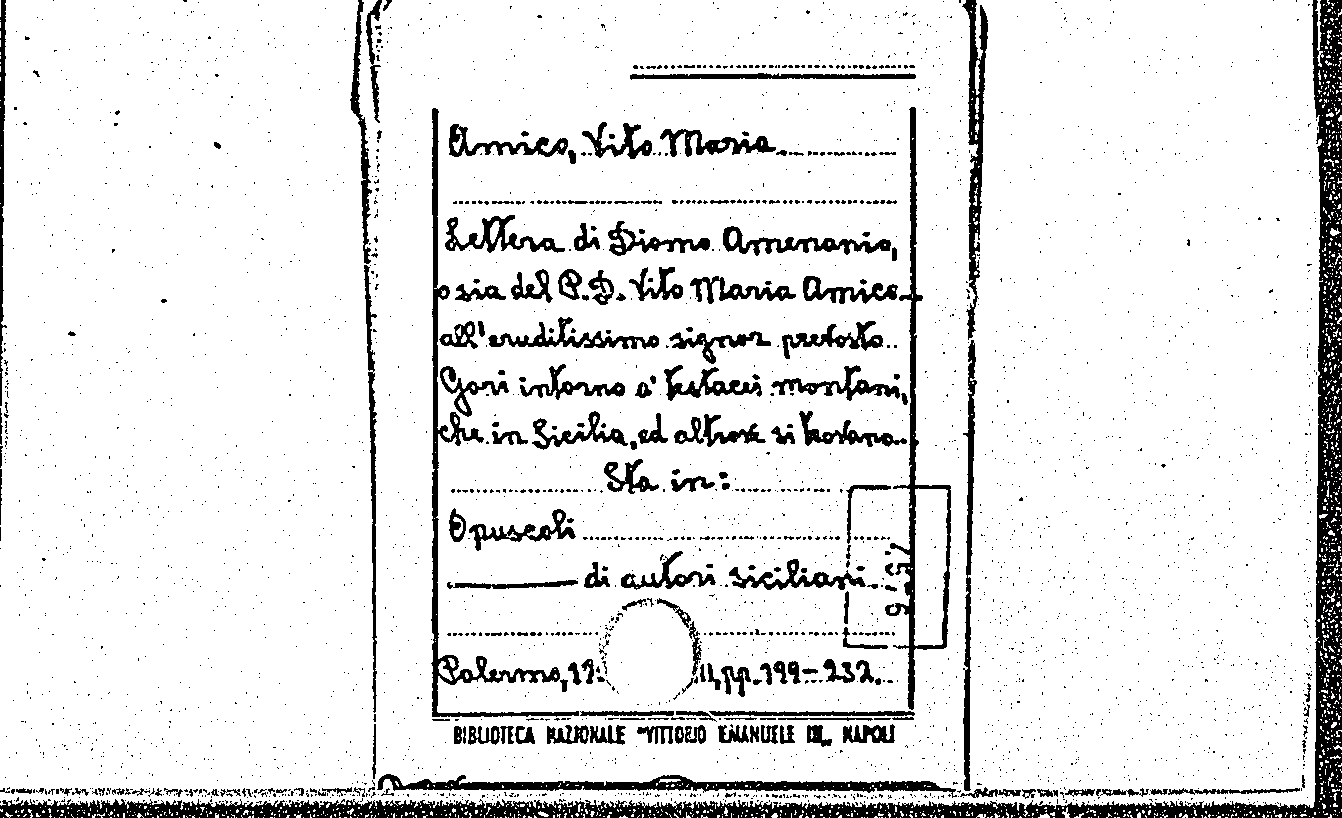 Amico, Vito Maria.
Lettera di Diomo Amenanio,
o sia del P. D. Vito Maria Amico
all'eruditissimo signor prevosto
Gori intorno a' testacei montani,
che in Sicilia, ed altrove si trovano.
Sta in:
Opuscoli
——— di autori siciliani.
Palermo, pp. 199-232.
BIBLIOTECA NAZIONALE "VITTORIO EMANUELE III„ NAPOLI